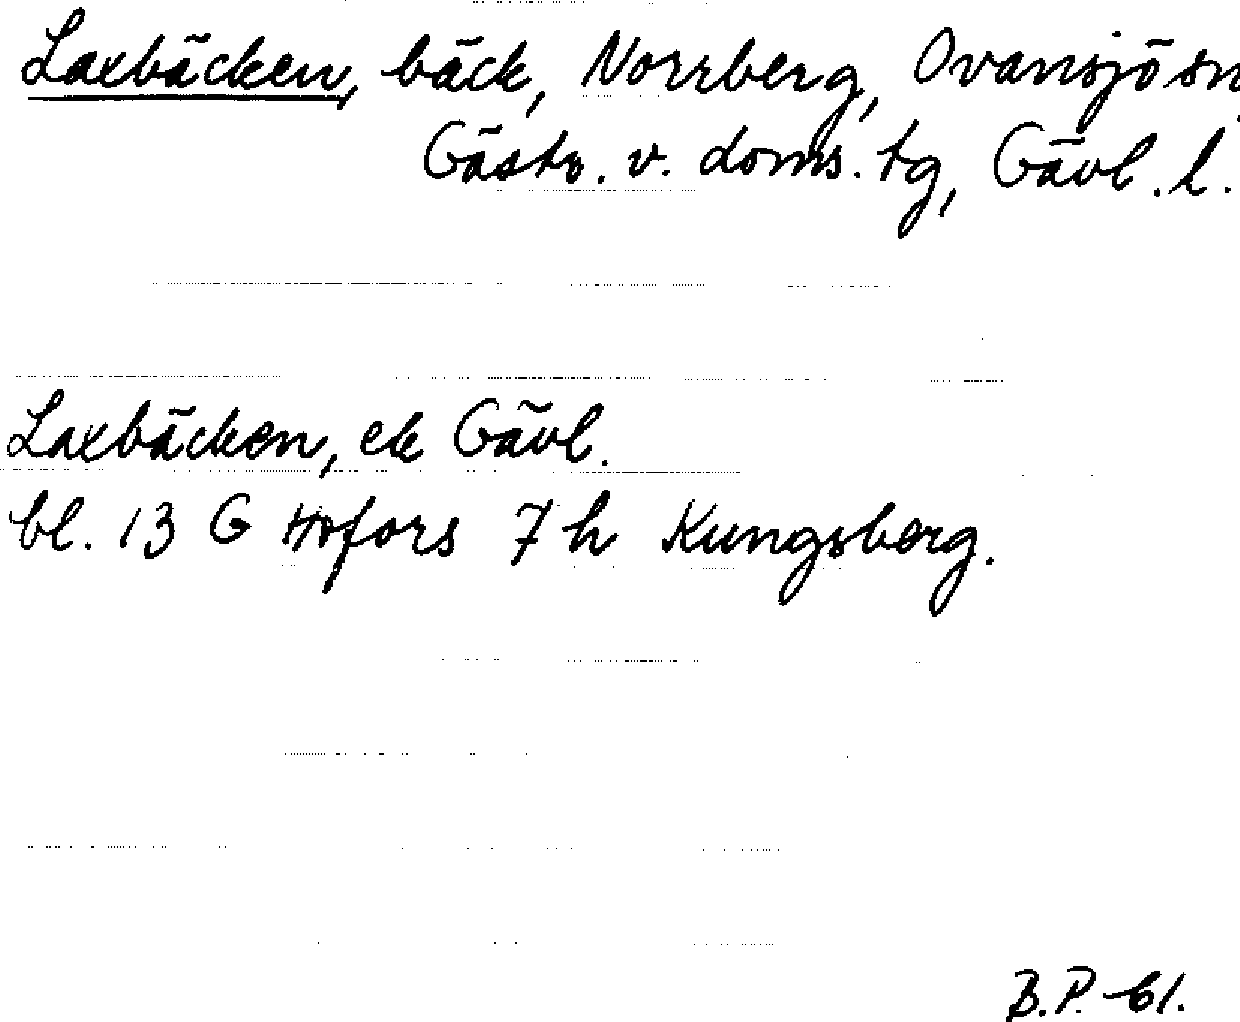 Laxbäcken, bäck, Norrberg, Ovansjö sn,
Gästr. v. doms. tg, Gävl. l.
Laxbäcken, ek Gävl.
bl. 13 G Hofors 7 h Kungsberg.
B.P. 61.